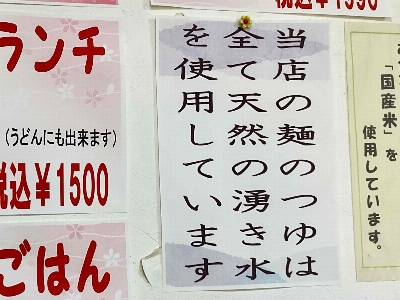 当店の麺のつゆは
全て天然の湧き水
を使用しています
ランチ
（うどんにも出来ます）
税込¥1500
ごはん
税込¥1590
「国産米」を
使用しています。